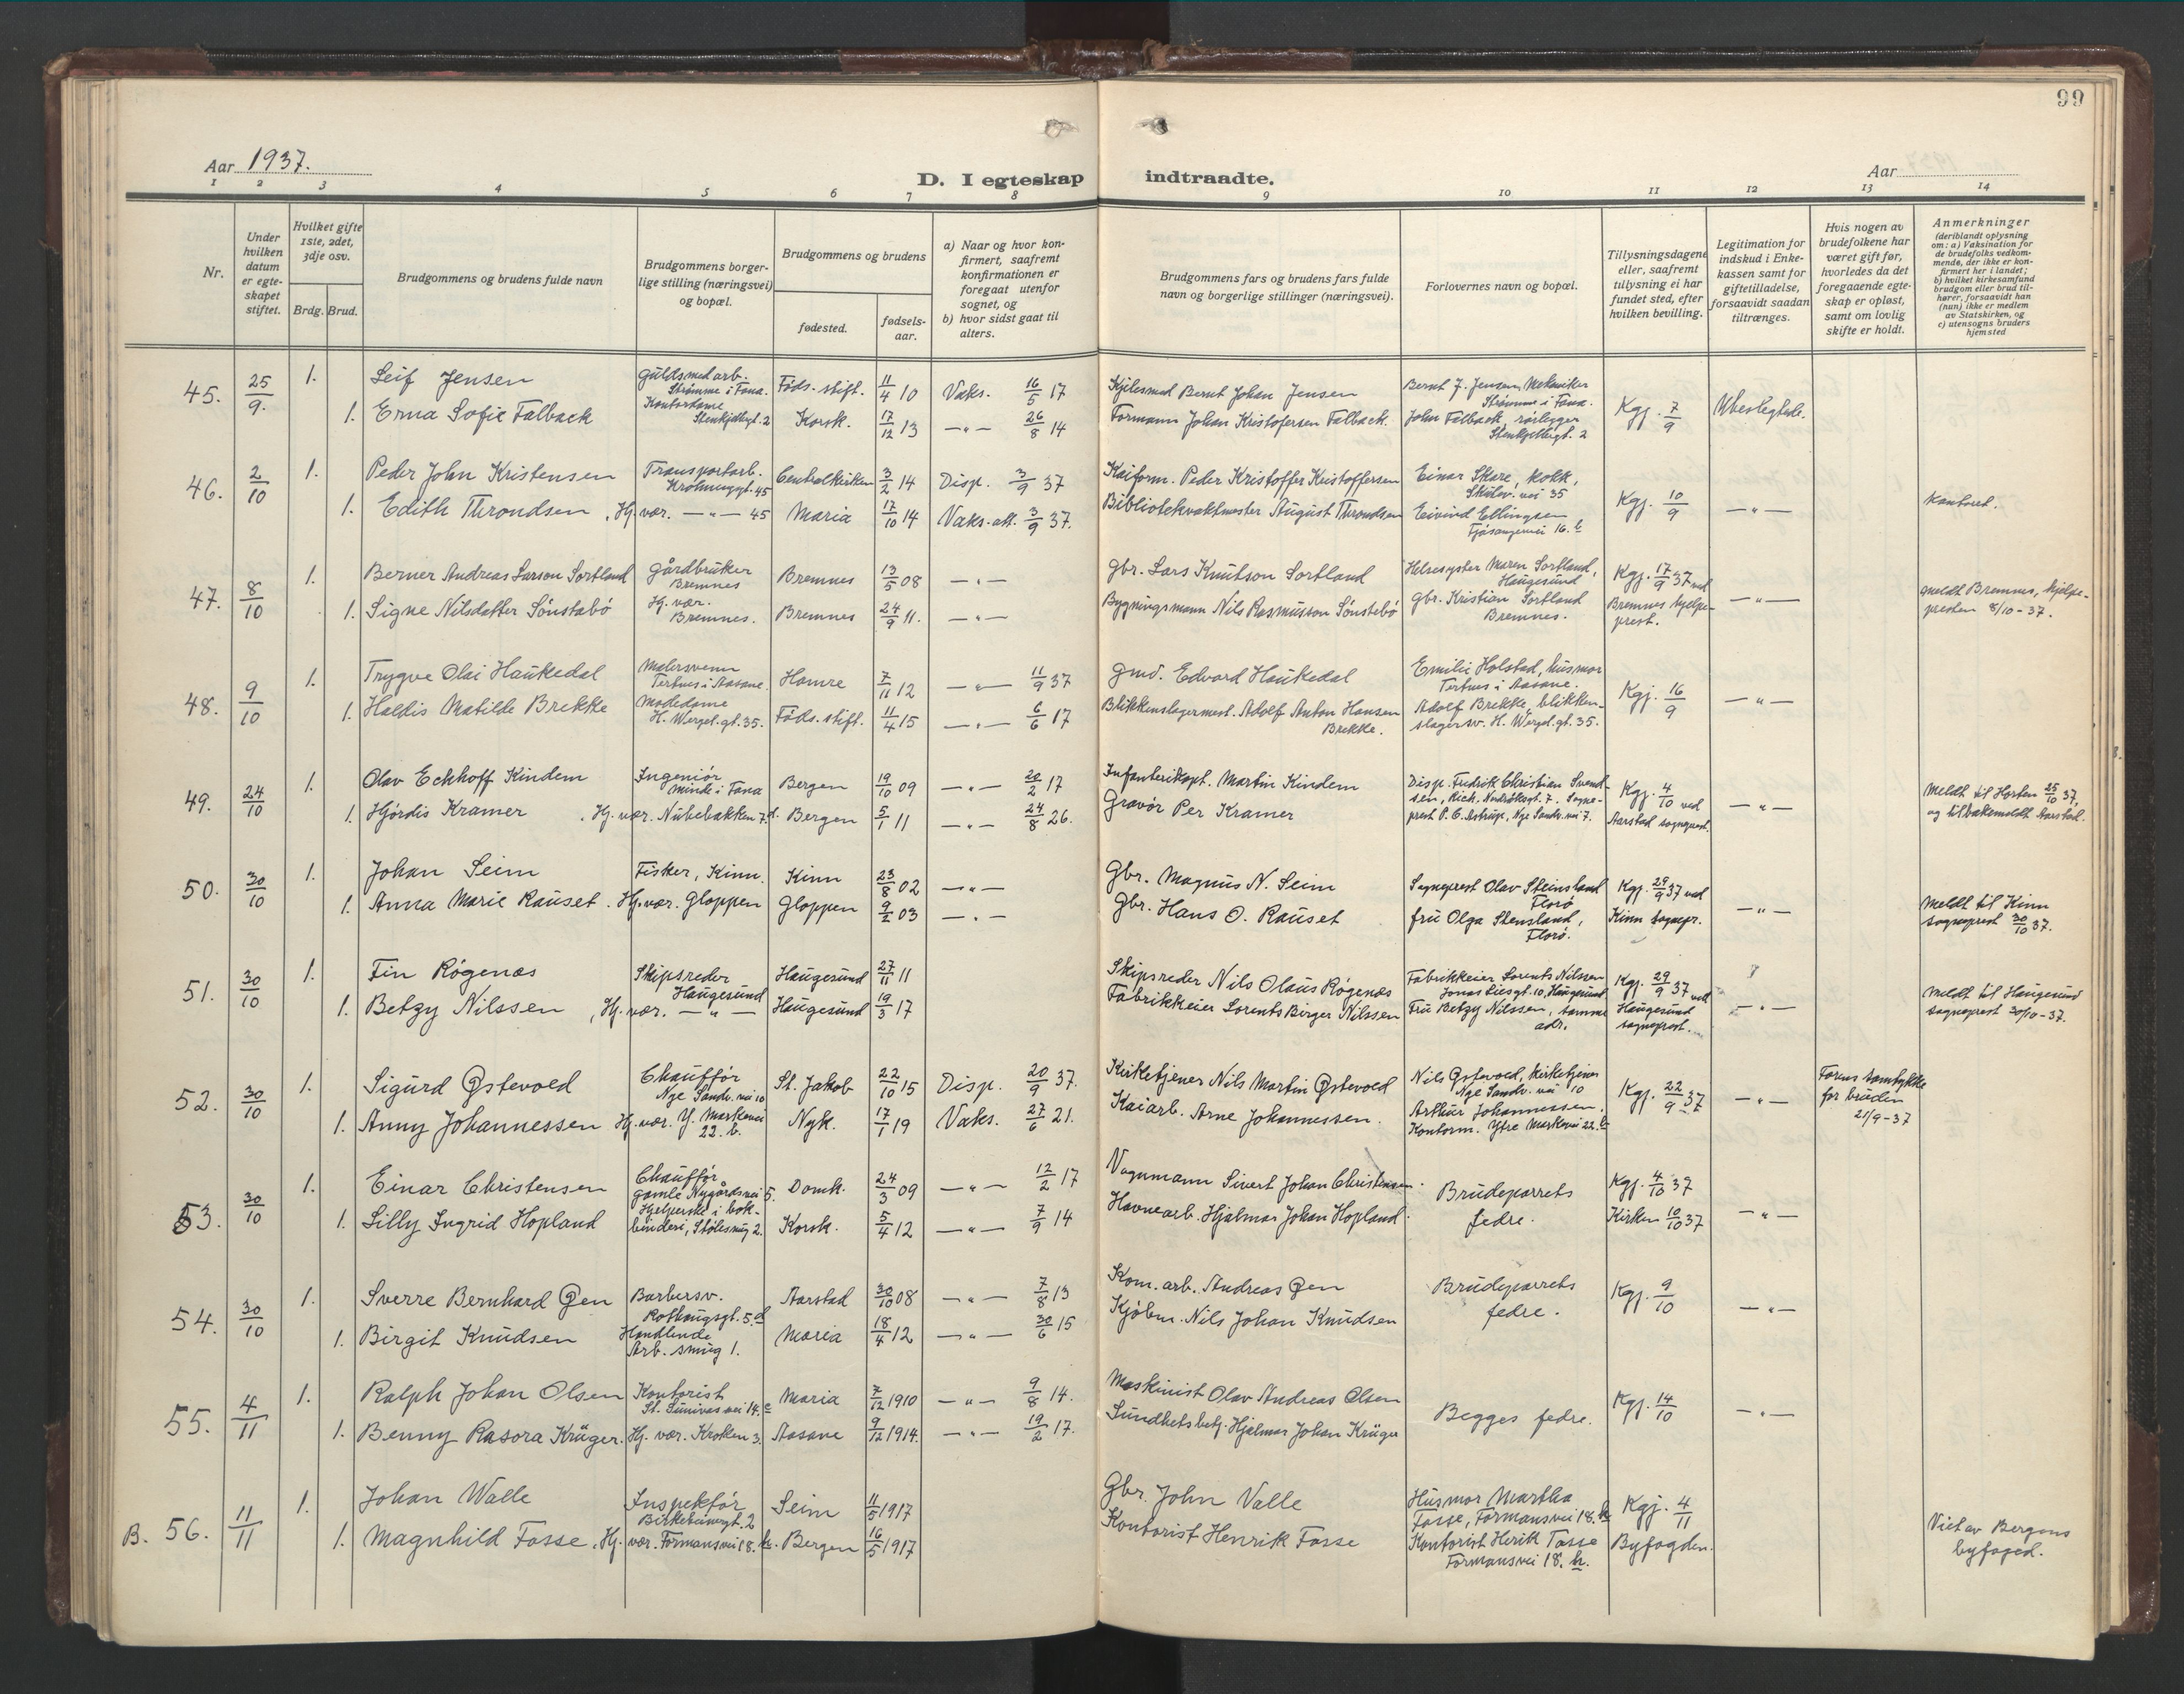 99
Aar 1937.
D. I egteskap indtraadte.
Aar
1 2 3 4 5 6 7 8 9 10 11 12 13 14
Nr.
Under hvilken datum er egteskapet stiftet.
Hvilket gifte 1ste, 2det, 3dje osv.
Brdg. Brud.
Brudgommens og brudens fulde navn
Brudgommens borgerlige stilling (næringsvei) og bopæl.
Brudgommens og brudens
fødested.
fødselsaar.
a) Naar og hvor konfirmert, saafremt konfirmationen er foregaat utenfor sognet, og
b) hvor sidst gaat til alters.
Brudgommens fars og brudens fars fulde navn og borgerlige stillinger (næringsvei).
Forlovernes navn og bopæl.
Tillysningsdagene eller, saafremt tillysning ei har fundet sted, efter hvilken bevilling.
Legitimation for indskud i Enkekassen samt for giftetilladelse, forsaavidt saadan tiltrænges.
Hvis nogen av brudefolkene har været gift før, hvorledes da det foregaaende egteskap er opløst, samt om lovlig skifte er holdt.
Anmerkninger (deriblandt oplysning om: a) Vaksination for de brudefolks vedkommende, der ikke er konfirmert her i landet; b) hvilket kirkesamfund brudgom eller brud tilhører, forsaavidt han (hun) ikke er medlem av Statskirken, og c) utensogns bruders hjemsted
45. 25/9. 1. Leif Jensen Guldsmedarb. Strømme i Fana. Føds. stift. 11/4 10 Vaks. 16/5 17 Kjelesmed Bernt Johan Jensen Bernt J. Jensen, Mekaniker Strømme i Fana. Kgj. 7/9 Ubeslegtede.
1. Erna Sofie Falback Kontordame Stenkjellergt. 2 Korsk. 17/12 13 —"— 26/8 14 Formann Johan Kristofersen Falback. John Falback, rørlegger Stenkjellergt. 2
46. 2/10 1. Peder John Kristensen Transportarb. 45 Centralkirken 3/2 14 Disp. 3/9 37 Kaiform. Peder Kristoffer Kristoffersen Einar Skare, kokk, Skuløv. vei 35 Kgj. 10/9 —"— Kontoret.
1. Edith Throndsen, Hj. vær. —"— 45 Maria 17/10 14 Vaks. att. 3/9 37. Bibliotekvaktmester August Throndsen Eivind Ellingsen Fjøsangervei 16. b
47. 8/10 1. Berner Andreas Larson Sortland Gårdbruker Bremnes Bremnes 13/5 08 —"— Gbr. Lars Knutson Sortland Helsesyster Maren Sortland, Haugesund Kgj. 17/9 37 ved Bremnes hjelpeprest. —"— Meldt Bremnes, hjelpepresten 8/10-37.
1. Signe Nilsdatter Sönstabö Hj. vær. Bremnes. Bremnes 24/9 11. —"— Bygningsmann Nils Rasmusson Sönstebö Gbr. Kristian Sortland Bremnes.
48. 9/10 1. Trygve Olai Haukedal Malersvenn Tertnes i Aasane. Hamre 7/11 12 —"— 11/9 37 Gmd. Edvard Haukedal Emilie Holstad, husmor Tertnes i Aasane. Kgj. 16/9 —"—
1. Haldis Matilde Brekke Modedame H. Wergel.gt. 35. Föds. stift. 11/4 15 —"— 6/6 17 Blikkenslagermest. Adolf Anton Hansen Brekke. Adolf Brekke, blikkenslagersv. H. Wergel.gt. 35.
49. 24/10 1. Olav Eckhoff Kindem Ingeniör Minde i Fana Bergen 19/10 09 —"— 20/2 17 Infanterikapt. Martin Kindem Disp. Fredrik Christian Svendsen, Rich. Nordråksgt. 7. Sogneprest P. C. Astrup, Nye Sandv. vei 7. Kgj. 4/10 ved Aarstad sogneprest. —"— Meldt til Horten 25/10 37, og tilbakemeldt Aarstad.
1. Hjördis Kramer Hj. vær. Nubebakken 7. d. Bergen 5/1 11 —"— 24/8 26. Gravör Per Kramer
50. 30/10 1. Johan Seim Fisker, Kinn. Kinn 23/8 02 —"— Gbr. Magnus N. Seim Sogneprest Olav Steinsland Florø Kgj. 29/9 37 ved Kinn sognepr. —"— Meldt til Kinn sogneprest 30/10 37.
1. Anna Marie Rauset. Hj. vær. Gloppen Gloppen 9/2 03 —"— Gbr. Hans O. Rauset fru Olga Stensland, Florø.
51. 30/10 1. Fin Rögenæs Skipsreder Haugesund Haugesund 27/11 11 Skipsreder Nils Olaus Rögenæs Fabrikkeier Lorents Nilssen Jonas Liesgt. 10, Haugesund Kgj. 29/9 37 ved Haugesund sogneprest. —"— Meldt til Haugesund sogneprest 30/10-37.
1. Betzy Nilssen, Hj. vær. —"— Haugesund 19/3 17 Fabrikkeier Lorents Birger Nilssen Fru Betzy Nilssen, samme adr.
52. 30/10 1. Sigurd Østevold Chaufför Nye Sandv. vei 10 St. Jakob 22/10 15 Disp. 20/9 37. Kirketjener Nils Martin Østevold Nils Østevold, kirketjener Nye Sandv. vei 10 Kgj. 22/9 37 —"— Farens samtykke for bruden 21/9-37
1. Anny Johannessen Hj. vær. Y. Markevei 22. b. Nyk. 17/1 19 Vaks. 27/6 21. Kaiarb. Arne Johannessen. Arthur Johannessen, Kontorm. Ytre Markevei 22. b
53. 30/10 1. Einar Christensen Chaufför, gamle Nygårdsvei 5. Domk. 24/3 09 —"— 12/2 17 Vognmann Sivert Johan Christensen. Brudeparrets fedre. Kgj. 4/10 37 Kirken 10/10 37 —"—
1. Lilly Ingrid Hopland Hjelperske i bokbinderi, Stölesmug 2. Korsk. 5/4 12 —"— 7/9 14 Havnearb. Hjalmar Johan Hopland.
54. 30/10 1. Sverre Bernhard Øen Barbersv. Rothaugsgt. 5. d Aarstad 30/10 08 —"— 7/8 13 Kom. arb. Andreas Øen Brudeparrets fedre. Kgj. 9/10 —"—
1. Birgit Knudsen Handlende Arb. smug 1. Maria 18/4 12 —"— 30/6 15 Kjöbm. Nils Johan Knudsen
55. 4/11 1. Ralph Johan Olsen Kontorist St. Sunivas vei 14. c Maria 7/12 1910 —"— 9/8 14. Maskinist Olav Andreas Olsen Begges fedre. Kgj. 14/10 —"—
1. Benny Rasora Krüger. Hj. vær. Kroken 3. Aasane 9/12 1914. —"— 19/2 17. Sundhetsbetj. Hjalmar Johan Krüger
B. 56. 11/11 1. Johan Walle Inspektör Birkebeinergt. 2 Seim 11/5 1917 Gbr. John Valle Husmor Martha Fosse, Formansvei 18. h Kgj. 4/11 Byfogden. Viet av Bergens byfoged.
1. Magnhild Fosse, Hj. vær. Formansvei 18. h. Bergen 16/5 1917 Kontorist Henrik Fosse Kontorist Herik Fosse Formansvei 18. h.